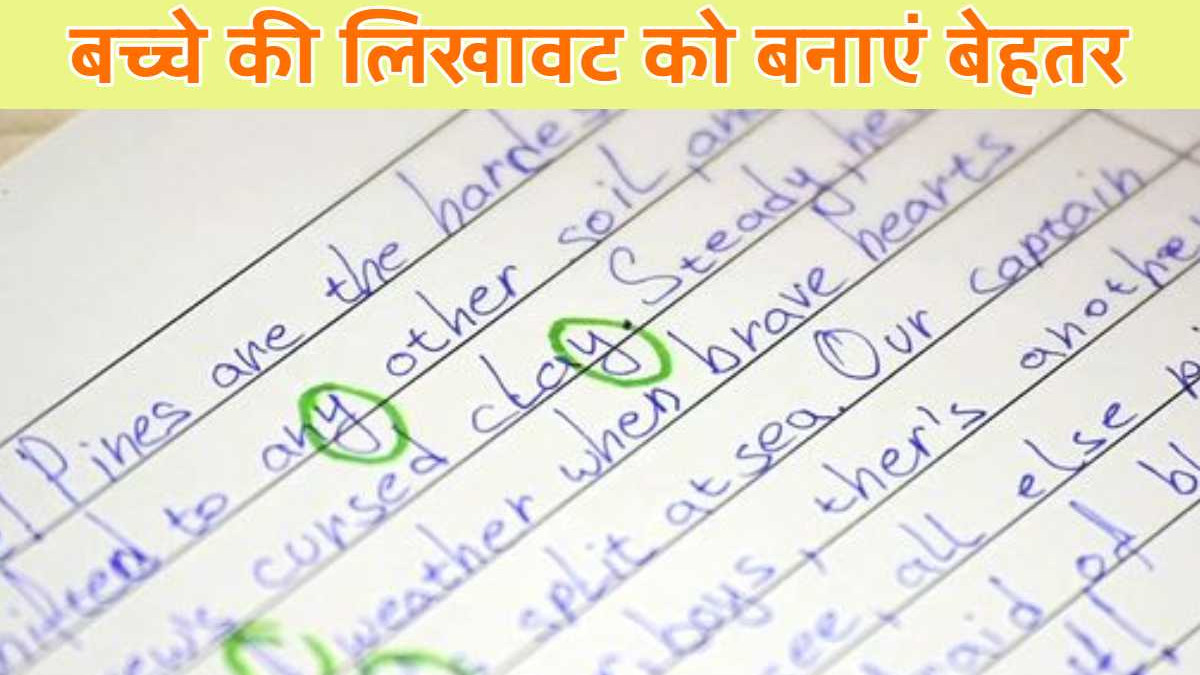 बच्चे की लिखावट को बनाएं बेहतर
Pines are the
to any other soil, and
cursed clay. Steady, he
weather when brave hearts
split at sea. Our captain
boys, ther's another
see, all else
of bl